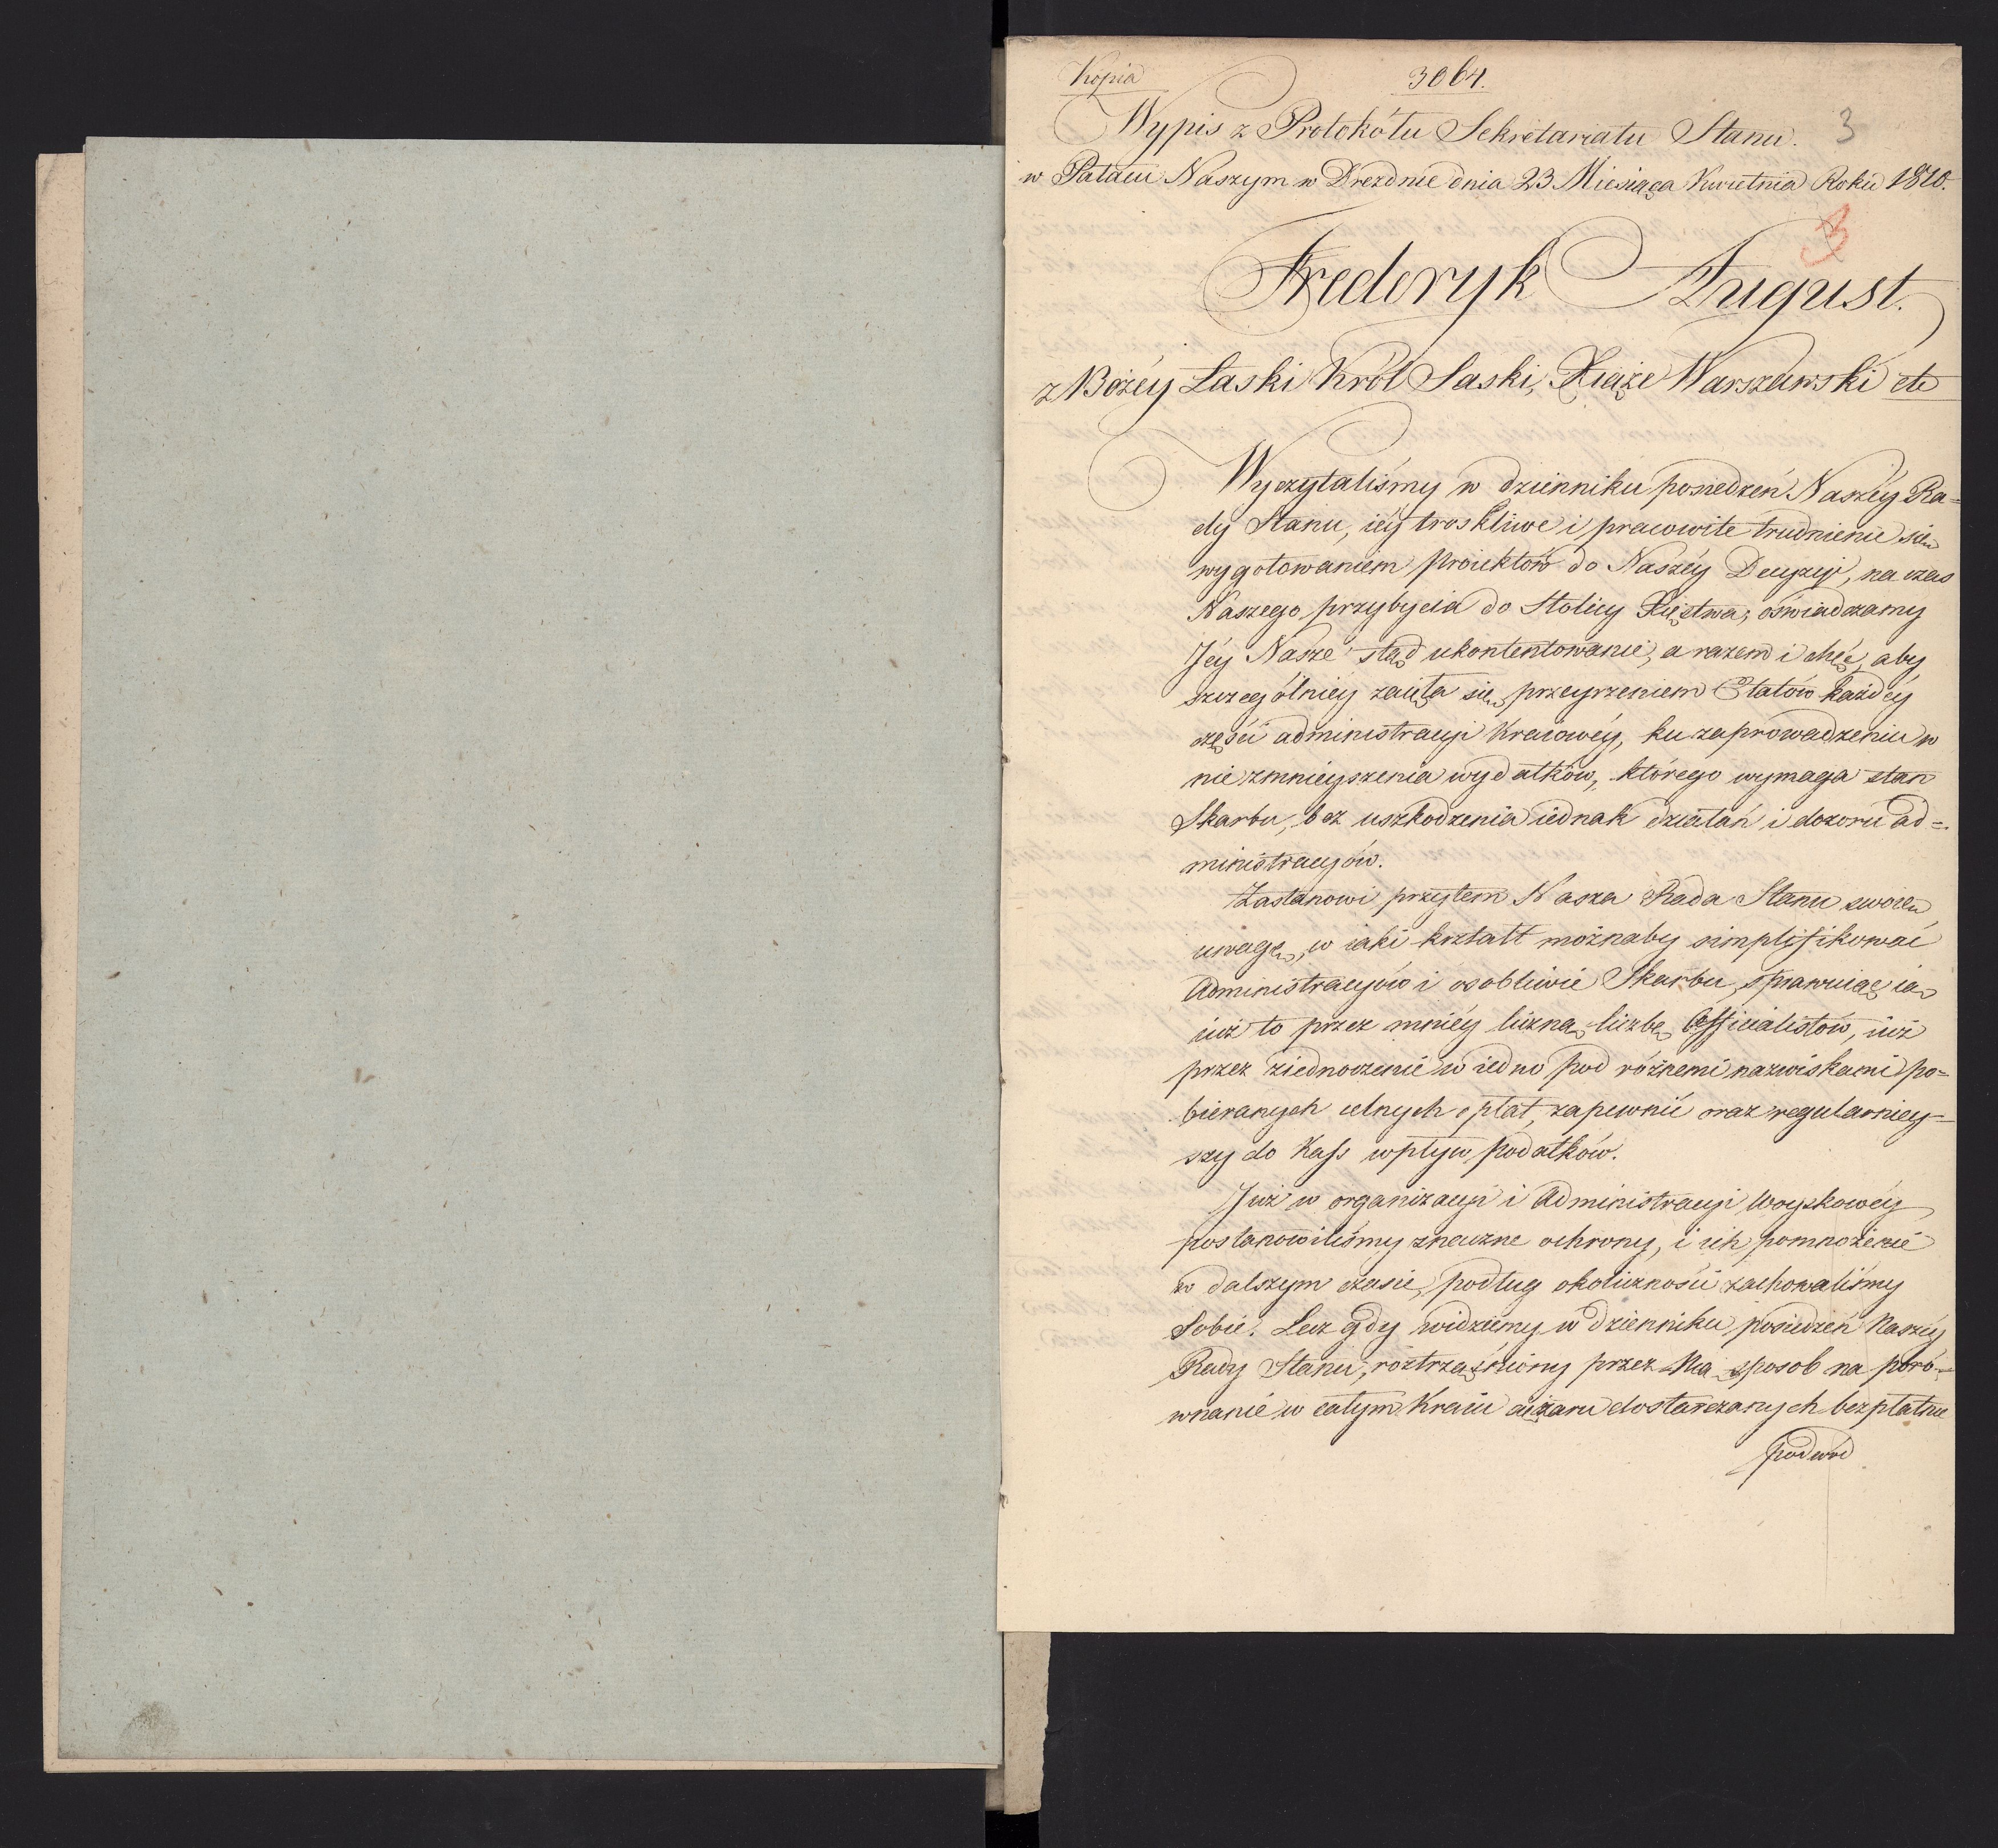 Kopia
3064.
Wypis z Protokółu Sekretariatu Stanu.
3
w Pałacu Naszym w Dreznie dnia 23 Miesiąca Kwietnia Roku 1810.
3
Frederyk August.
z Bożéy Łaski Król Saski, Xiąże Warszawski etc
Wyczytaliśmy w dzienniku posiedzeń Naszéy Ra=
dy Stanu, iéy troskliwe i pracowite trudnienie się
wygotowaniem proiektów do Naszéy Decyzyi, na czas
Naszego przybycia do Stolicy Xięstwa; oświadczamy
Jéy Nasze stąd ukontentowanie, a razem i chęć, aby
szczególniéy zaięła się przeyrzeniem Etatów każdéy
części administracyi Kraiowéy, ku zaprowadzeniu w
nie zmnieyszenia wydatków, którego wymaga stan
Skarbu, bez uszkodzenia iednak działań i dozoru ad=
ministracyów.
Zastanowi przytem Nasza Rada Stanu swoię
uwagę, w iaki kształt możnaby simplifikować
Administracyów i osobliwie Skarbu, sprawuiąc ią
iuż to przez mniéy liczną liczbę Officialistów, iuż
przez ziednoczenie w iedno pod różnemi nazwiskami po=
bieranych celnych opłat, zapewnić oraz regularniey=
szy do Kass wpływ podatków.
Już w organizacyi i Administracyi Woyskowéy
postanowiliśmy znaczne ochrony, i ich pomnożenie
w dalszym czasie, podług okoliczności zachowaliśmy
Sobie. Lecz gdy widziemy w dzienniku posiedzeń Naszéy
Rady Stanu, roztrząśniony przez Nią sposob na poró=
wnanie w całym Kraiu ciężaru dostarczanych bezpłatnie
podwód